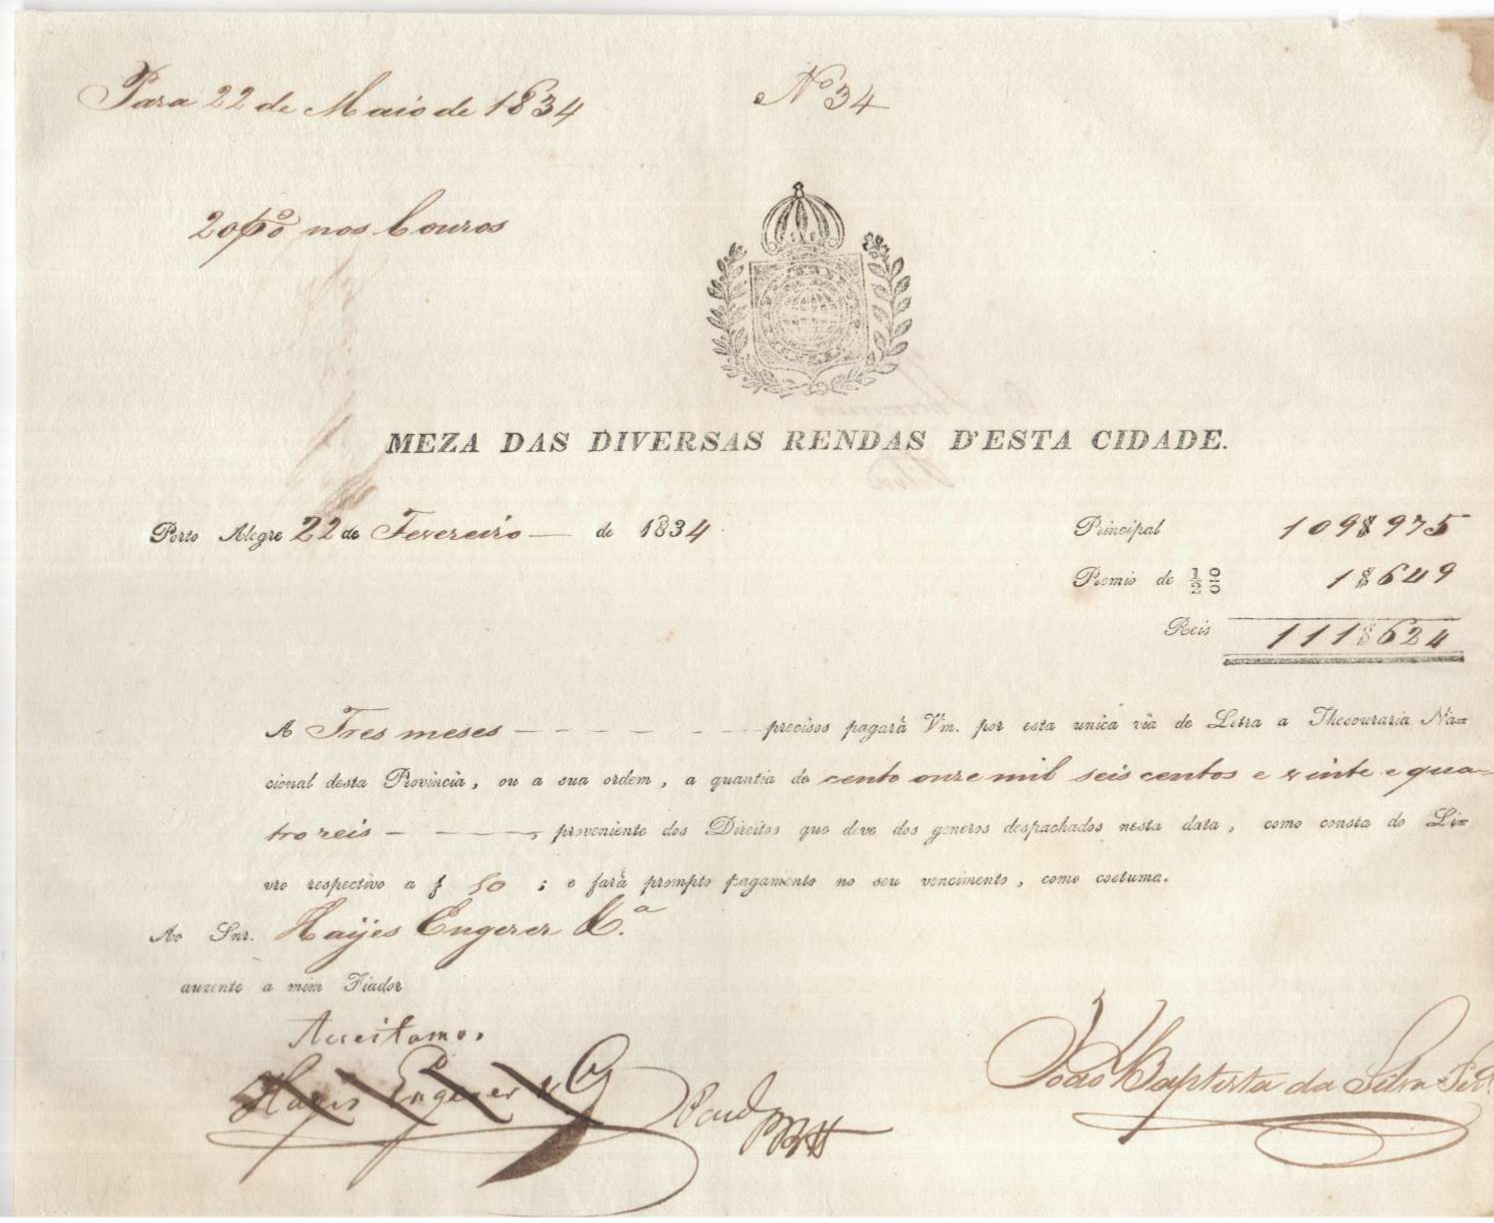 Para 22 de Maio de 1834 Nº 34
20 p% nos Couros
MEZA DAS DIVERSAS RENDAS D'ESTA CIDADE.
Porto Alegre 22 de Fevereiro — de 1834
Principal 109$975
Premio de ½ % 1$649
Reis 111$624
A Tres meses — — — — — — precisos pagará Vm. por esta unica via de Letra a Thesouraria Na=
cional desta Provincia, ou a sua ordem, a quantia de cento onze mil seis centos e vinte e qua=
tro reis — ——, proveniente dos Direitos que deve dos generos despachados nesta data, como consta do Li=
vro respectivo a f 50 ; e fará prompto pagamento no seu vencimento, como costuma.
Ao Snr. Hayjes Engerer & C.ª
auzente a mim Fiador
Acceitamos
Hayes Engerer & Cy
João Baptista da Silva